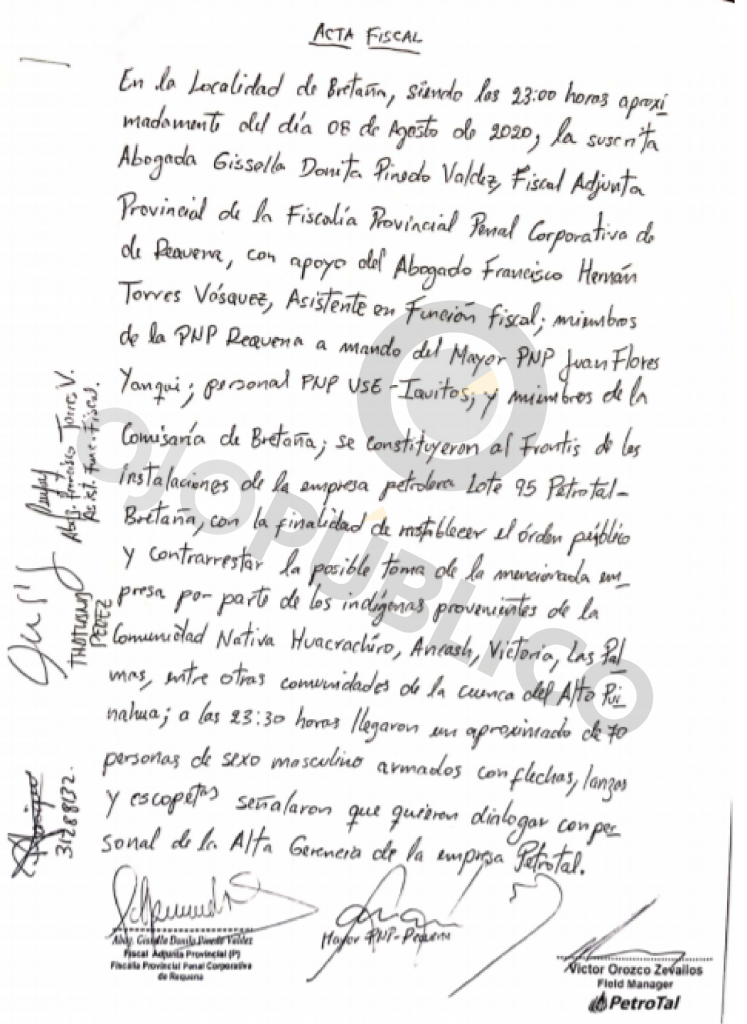 ACTA FISCAL
En la Localidad de Bretaña, siendo las 23:00 horas aproxi
madamente del día 08 de Agosto de 2020, la suscrita
Abogada Gissella Donita Pinedo Valdez, Fiscal Adjunta
Provincial de la Fiscalía Provincial Penal Corporativa de
de Requena, con apoyo del Abogado Francisco Hernán
Torres Vásquez, Asistente en Función fiscal; miembros
de la PNP Requena a mando del Mayor PNP Juan Flores
Yanqui; personal PNP USE-Iquitos; y miembros de la
Comisaría de Bretaña; se constituyeron al Frontis de las
instalaciones de la empresa petrolera Lote 95 Petrotal-
Bretaña, con la finalidad de restablecer el órden público
y contrarrestar la posible toma de la mencionada em
presa por parte de los indígenas provenientes de la
Comunidad Nativa Huacrachiro, Ancash, Victoria, Las Pal
mas, entre otras comunidades de la cuenca del Alto Pui
nahua; a las 23:30 horas llegaron un aproximado de 70
personas de sexo masculino armados con flechas, lanzas
y escopetas señalaron que quieren dialogar con per
sonal de la Alta Gerencia de la empresa Petrotal.
Abog. Francisco Torres V.
Asist. Func. Fiscal.
PEREZ
31288132.
OJOPÚBLICO
Abog. Gissella Donita Pinedo Valdez
Fiscal Adjunta Provincial (P)
Fiscalía Provincial Penal Corporativa
de Requena
Mayor PNP-Requena
Victor Orozco Zevallos
Field Manager
PetroTal